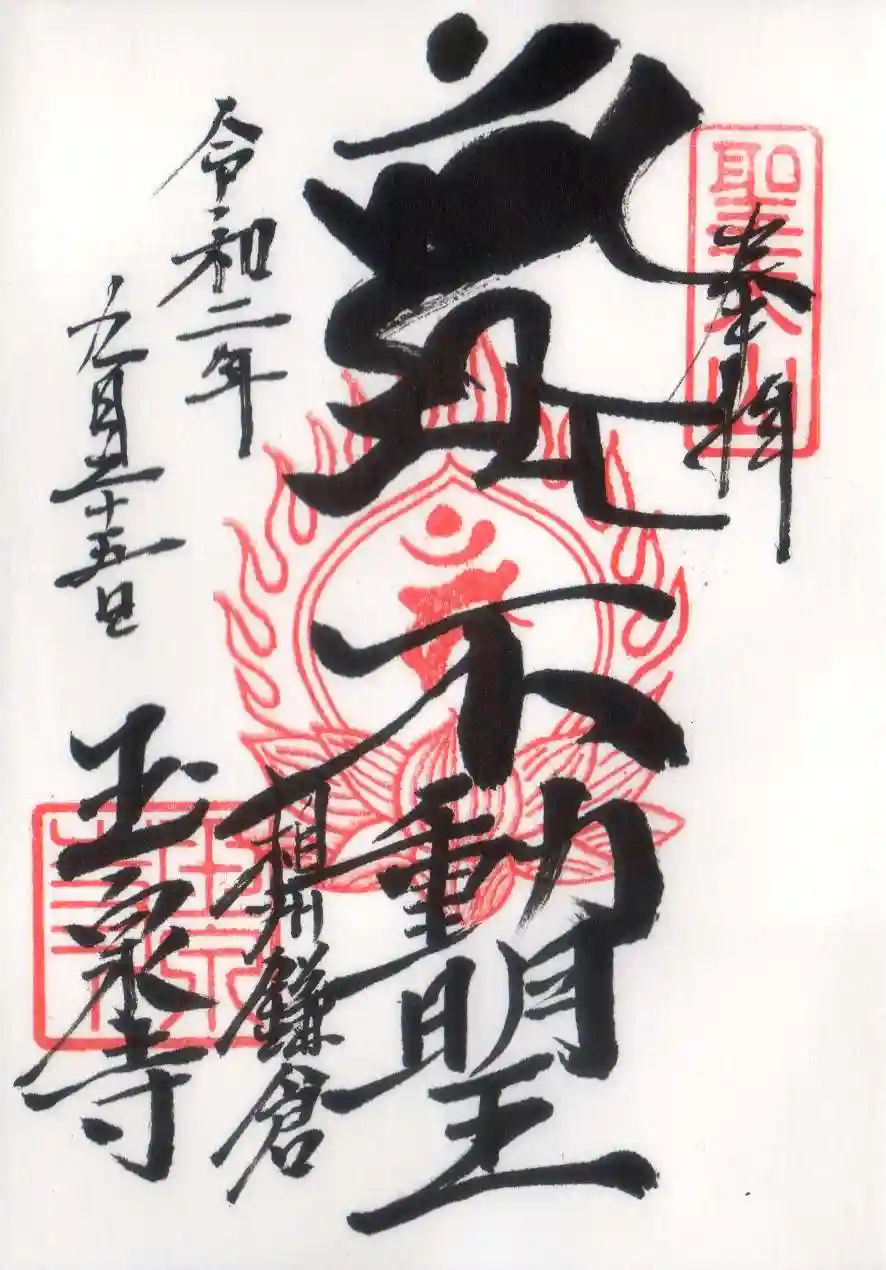 奉拝
聖天山
不動明王
相州鎌倉
玉泉寺
令和二年
九月二十五日